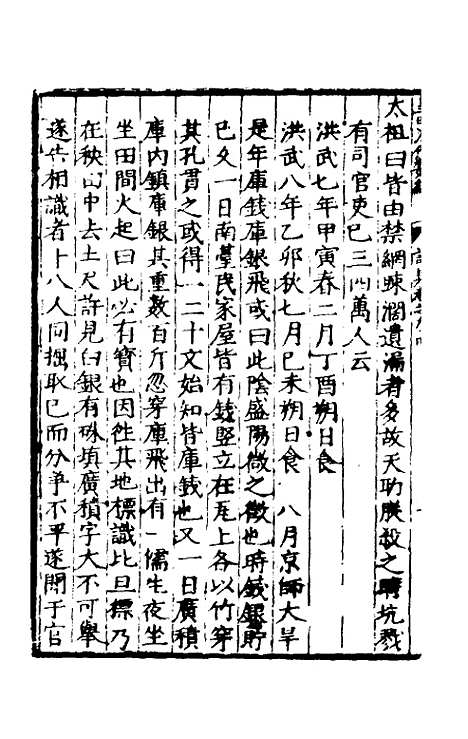 太祖曰皆由禁網踈濶遺漏者多故天助朕殺之時坑戮
有司官吏已三四萬人云
洪武七年甲寅春二月丁酉朔日食
洪武八年乙卯秋七月己未朔日食　八月京師大旱
是年庫錢庫銀飛或曰此陰盛陽微之徵也時錢銀貯
已久一日南臺民家屋皆有錢竪立在瓦上各以竹穿
其孔貫之或得一二十文始知皆庫錢也又一日廣積
庫內鎮庫銀其重數百斤忽穿庫飛出有一儒生夜坐
坐田間火起曰此必有寶也因往其地標識比旦標乃
在秧田中去土尺許見白銀有硃填廣積字大不可舉
遂告相識者十八人同掘取已而分爭不平遂聞于官